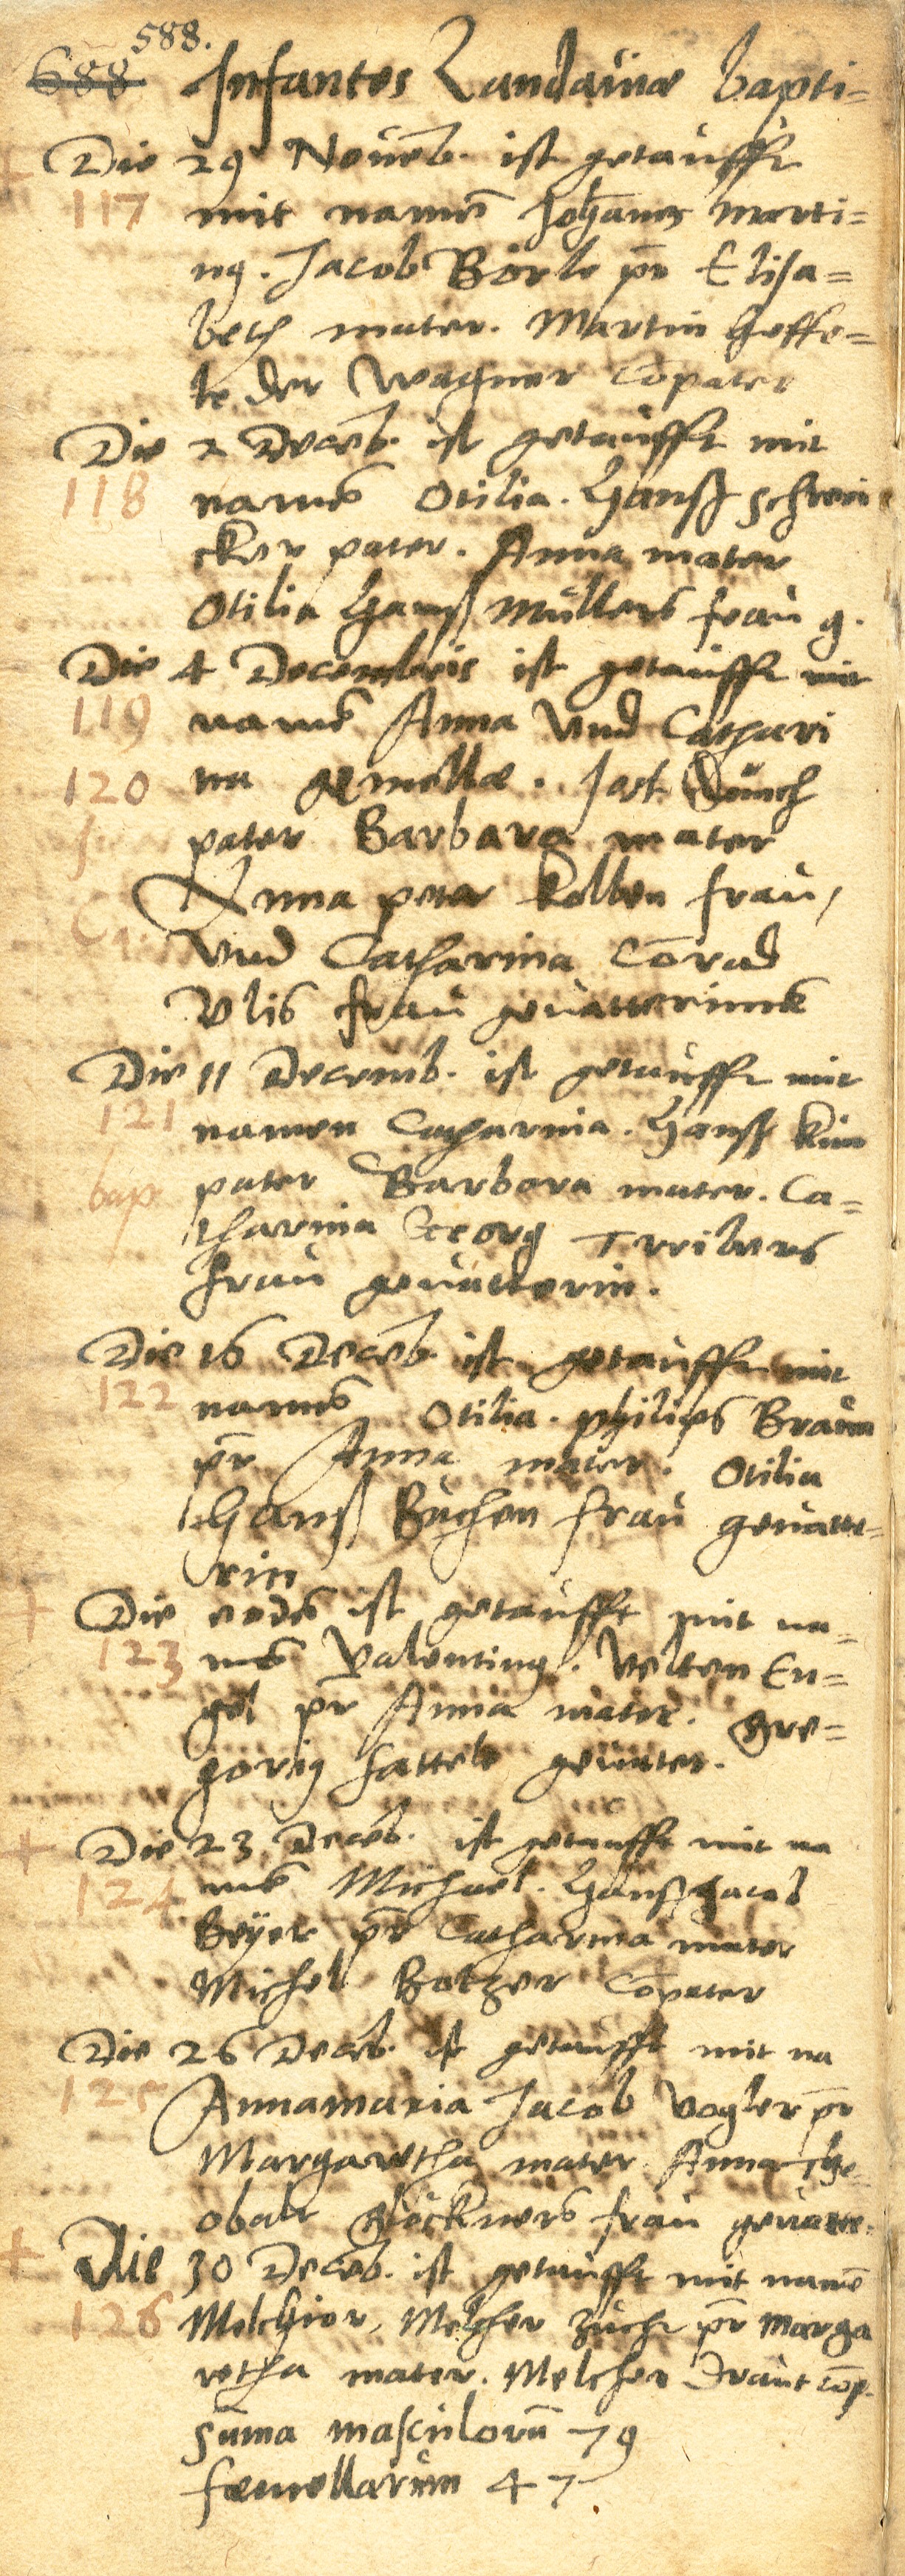 588.
688 Infantes Landaviae bapti=
Die 29 Novēb. ist getaufft
117 mit namē Johannes Marti=
nꝯ. Jacob Börle pr̄ Elisa=
beth mater. Martin Heffe=
le der Wagner Cōpater
Die 2 Decēb. ist getaufft mit
118 namē Otilia. Hanß Schrein
cker pater. Anna mater
Otilia Hanß Müllers frau g.
Die 4 Decembris ist getaufft mit
119 namē Anna Und Cathari
120 na gemellae. Jost
pater Barbara mater
Anna peter Kolben frau,
Und Catharina Cōrad
Ulis frau gevatterinnē
Die 11 Decemb. ist getaufft mit
121 namen Catharina. Hanß
bap pater Barbara mater. Ca=
tharina Georg Treibers
frau gevatterin.
Die 16 Decēb ist getaufft mit
122 namē Otilia. Philips Braun
pr̄ Anna mater. Otilia
Hanß Buchen frau gevatte=
rin
+ Die eodē ist getaufft mit na=
123 mē Valentinꝯ. Velten En=
gel pr̄ Anna mater. Gre=
goriꝯ Hattele gevater.
+ Die 23 Decēb. ist getaufft mit na
124 mē Michael. Hanß Jacob
Beÿer pr̄ Catharina mater
Michel Botzer Cōpater
Die 26 Decēb. ist getaufft mit na
125 Annamaria Jacob Vogler pr̄
Margaretha mater Anna The=
obalt Glöckners frau gevatte=
+ Die 30 Decēb. ist getaufft mit namē
126 Melchior, Melcher Zuch pr̄ Marga
retha mater. Melcher Traut cōp.
Sūma masculorū 79
faemellarum 47